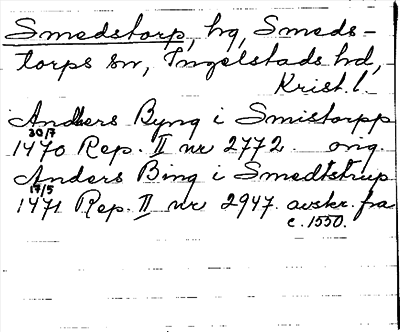 Smedstorp, hg, Smeds-
torps sn, Ingelstads hd,
Krist. l.
Anders Byng i Smistorpp
30/7
1470 Rep. II nr 2772. orig.
Anders Bing i Smedtstrup
17/5
1471 Rep. II nr 2947. avskr. fra
c. 1550.